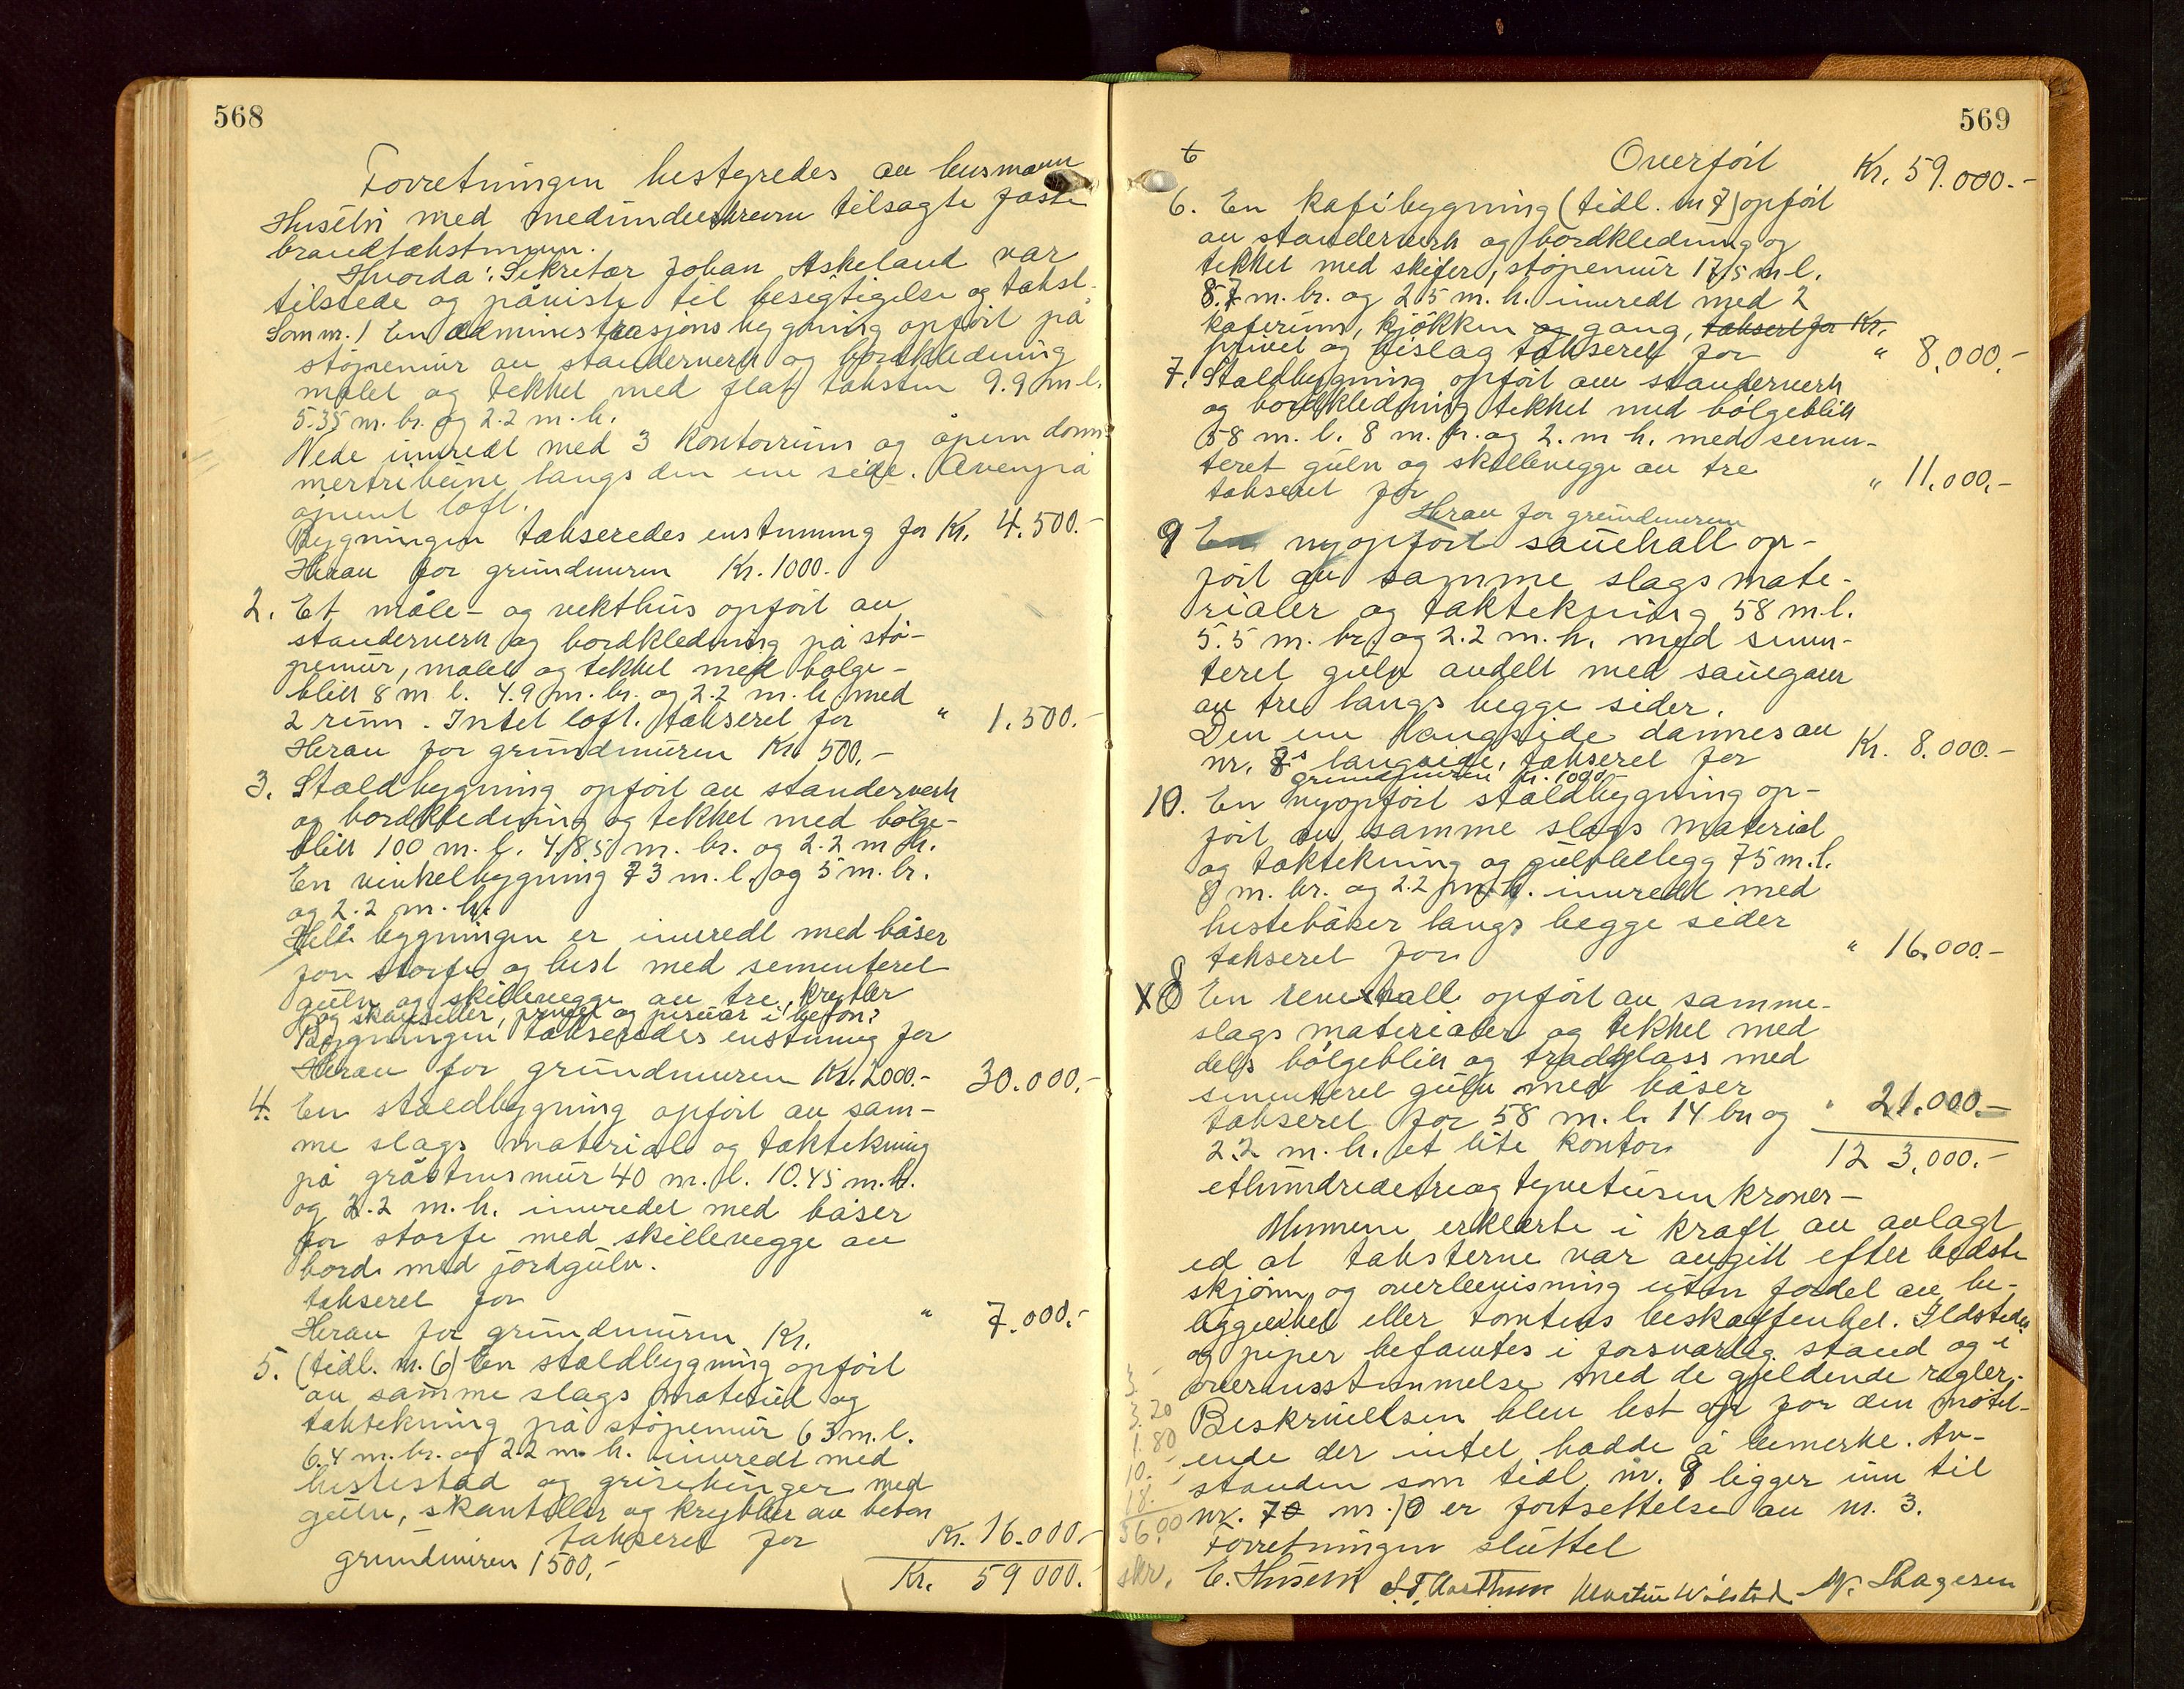 568
Forretningen bestyredes av lensmann
Husebø med medunderskrevne tilsagte faste
brandtakstmenn.
Hvorda: Sekretær Johan Askeland var
tilstede og påviste til besigtigelse og takst.
Som nr. 1 En administrasjonsbygning opført på
støpemur av standerverk og bordkledning
malet og tekket med flat taksten 9.9 m l.
5.35 m. br. og 2.2 m. h.
Nede innredt med 3 kontorrum og åpen dom-
mertribune langs den ene side. Ovenpå
åpent loft.
Bygningen takseredes enstemmig for Kr. 4.500.-
Herav for grundmuren Kr. 1000.-
2. Et måle- og vekthus opført av
standerverk og bordkledning på stø-
pemur, malet og tekket med bølge-
blikk 8 m l. 4.9 m. br. og 2.2 m. h. med
2 rum. Intet loft. takseret for " 1.500.-
Herav for grundmuren Kr. 500,-
3. Staldbygning opført av standerverk
og bordkledning og tekket med bølge-
blikk 100 m. l. 4.85 m. br. og 2.2 m h.
En vinkelbygning 73 m. l. og 5 m. br.
og 2.2 m. h.
Hele bygningen er innredt med båser
for storfe og hest med sementeret
gulv og skillevegge av tre, krybber
og skantiller, privet og pissoar i beton?
Bygningen takseredes enstemmig for
Herav for grundmuren Kr. 2000.- 30.000,-
4. En staldbygning opført av sam-
me slags material og taktekning
på gråstensmur 40 m. l. 10.45 m. b.
og 2.2 m. h. innredet med båser
for storfe med skillevegge av
bord med jordgulv.
takseret for " 7.000.-
Herav for grundmuren Kr.
5. (tidl. nr. 6) En staldbygning opført
av samme slags material og
taktekning på støpemur 63 m. l.
6.4 m. br. og 2.2 m. h. innredt med
hestestad og grisebinger med
gulv, skantiller og krybber av beton
takseret for Kr. 16.000,-
grundmuren 1500,-
Kr. 59 000.
569
Overført Kr. 59.000.-
6
6. En kafebygning (tidl. nr 7) opført
av standerverk og bordkledning og
tekket med skifer, støpemur 17,5 m l.
8.7 m. br. og 2.5 m. h. innredt med 2
kaferum, kjøkken og gang, takseret for Kr.
privet og bislag takseret for " 8.000.-
7. Staldbygning opført av standerverk
og bordkledning tekket med bølgeblikk
58 m. l. 8 m. br. og 2. m h. med semen-
teret gulv og skillevegge av tre
takseret for " 11.000,-
Herav for grundmuren
9 En nyopført sauehall op-
ført av samme slags mate-
rialer og taktekning 58 m. l.
5.5 m. br. og 2.2 m. h. med semen-
teret gulv avdelt med sauegarer
av tre langs begge sider.
Den ene langside dannes av
nr. 7s langside, takseret for Kr. 8.000.-
grundmuren kr. 1000
10. En nyopført staldbygning op-
ført av samme slags material
og taktekning og gulvbelegg 75 m. l.
8 m. br. og 2.2 m. h. innredt med
hestebåser langs begge sider
takseret for " 16.000.-
X 8 En hall opført av samme
slags materialer og tekket med
dels bølgeblikk og tradglass med
sementeret gulv med båser
takseret for 58 m. l. 14 br og " 21.000.-
2.2 m. h. et lite kontor. 123.000.-
ethundredetreogtyvetusen kroner-
Mennene erklærte i kraft av avlagt
ed at taksterne var avgitt efter bedste
skjønn og overbevisning uten fordel av be-
liggenhet eller tomtens beskaffenhet. Ildsteder
og piper befantes i forsvarlig stand og i
overensstemmelse med de gjeldende regler.
Beskrivelsen blev lest op for den møtet-
ende der intet hadde å bemerke. Av-
standen som tidl. nr. 9 ligger inn til
nr. 7 nr. 10 er fortsettelse av nr. 3.
Forretningen sluttet
3.20
1.80
10.
18.
36.00
skr.
E. Husebø Martin Wiestad